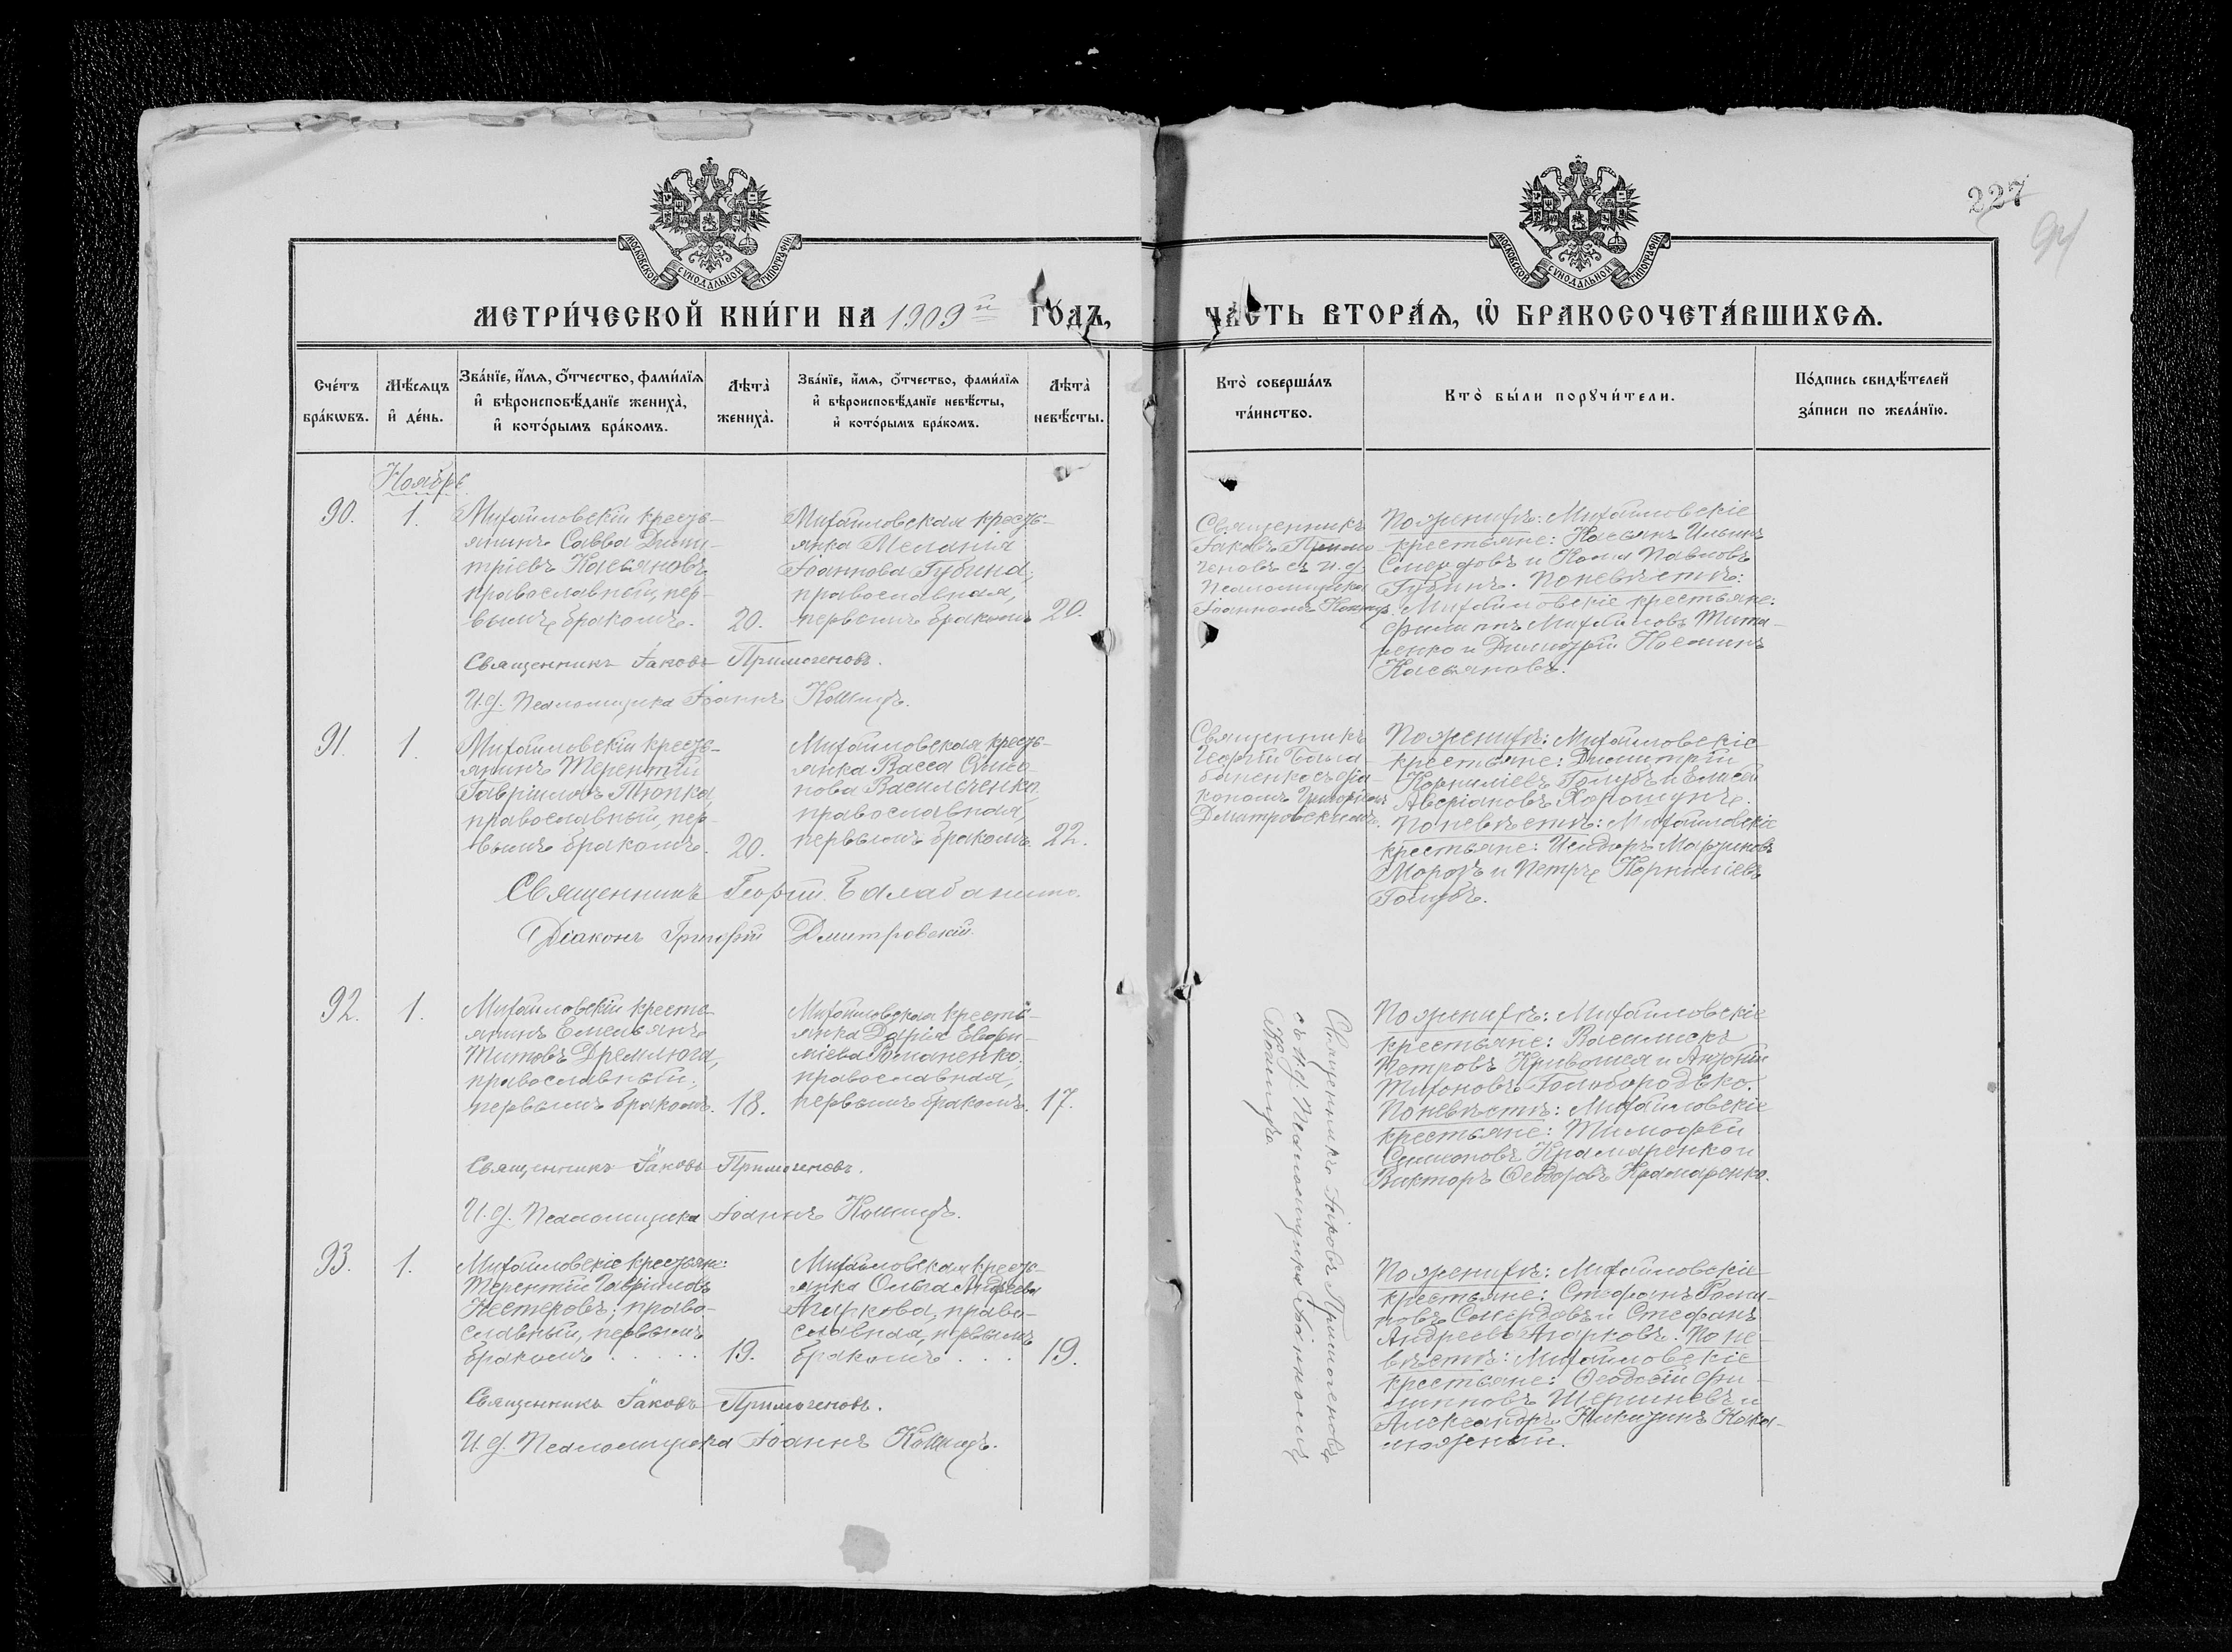 227
94
МОСКОВСКОЙ СУНОДАЛЬНОЙ ТИПОГРАФІИ
МОСКОВСКОЙ СУНОДАЛЬНОЙ ТИПОГРАФІИ
МЕТРИ́ЧЕСКОЙ КНИ́ГИ НА 1909й ГО́ДЪ,
ЧА́СТЬ ВТОРА́Ѧ, Ѡ҆ БРАКОСОЧЕТА́ВШИХСѦ.
Сче́тъ бра́кѡвъ.
Мѣ́сяцъ и҆ де́нь.
Зва́нїе, и҆́мѧ, ѻ҆́тчество, фами́лїѧ и҆ вѣроисповѣ́данїе жениха̀, и҆ кото́рымъ бра́комъ.
Лѣта̀ жениха̀.
Зва́нїе, и҆́мѧ, ѻ҆́тчество, фами́лїѧ и҆ вѣроисповѣ́данїе невѣ́сты, и҆ кото́рымъ бра́комъ.
Лѣта̀ невѣ́сты.
Кто̀ соверша́лъ та́инство.
Кто̀ бы́ли порꙋчи́тели.
По́дпись свидѣ́телей за́писи по жела́нїю.
Ноябрь
90.
1.
Михайловскій кресть-
янинъ Савва Дими-
тріевъ Касьяновъ,
православный, пер-
вымъ бракомъ.
20.
Михайловская кресть-
янка Меланія
Іоаннова Губина,
православная,
первымъ бракомъ
20.
Священникъ
Іаковъ Примо-
геновъ съ и. д.
Псаломщика
Іоанномъ
По женихѣ: Михайловскіе
крестьяне: Касьянъ Ильинъ
Смердовъ и Павловъ
Губинъ. По невѣстѣ:
Михайловскіе крестьяне:
Филиппъ Михайловъ Тита-
ренко и Димитрій
Касьяновъ.
Священникъ Іаковъ Примогеновъ.
И. д. Псаломщика Іоаннъ
91.
1.
Михайловскій кресть-
янинъ Терентій
Гавріиловъ Тюпка,
православный, пер-
вымъ бракомъ.
20.
Михайловская кресть-
янка Васса Симео-
нова Васильченко,
православная,
первымъ бракомъ.
22.
Священникъ
Георгій Бала-
баненко съ діа-
кономъ Григоріемъ
Дмитровскимъ.
По женихѣ: Михайловскіе
крестьяне: Димитрій
Корниліевъ Голубъ и Елисей
Аверіановъ Хорошунъ.
По невѣстѣ: Михайловскіе
крестьяне: Исидоръ Мартиновъ
Морозъ и Петръ Корниліевъ
Голубъ.
Священникъ Георгій Балабаненко.
Діаконъ Григорій Дмитровскій.
92.
1.
Михайловскій кресть-
янинъ Емельянъ
Титовъ Дремлюга,
православный,
первымъ бракомъ.
18.
Михайловская кресть-
янка Дарія Евфи-
міева Романенко,
православная,
первымъ бракомъ.
17.
Священникъ Іаковъ Примогеновъ
съ и. д. Псаломщика Іоанномъ
По женихѣ: Михайловскіе
крестьяне: Василискъ
Петровъ Кривошея и Антоній
Тихоновъ Голобородько.
По невѣстѣ: Михайловскіе
крестьяне: Тимофей
Симеоновъ Крамаренко и
Викторъ Ѳеодоровъ Крамаренко.
Священникъ Іаковъ Примогеновъ.
И. д. Псаломщика Іоаннъ
93.
1.
Михайловскіе крестьяне:
Терентій Гавріиловъ
Нестеровъ, право-
славный, первымъ
бракомъ . . . . .
19.
Михайловская кресть-
янка Ольга Андреева
Агаркова, право-
славная, первымъ
бракомъ . . .
19.
По женихѣ: Михайловскіе
крестьяне: Стефанъ
Смердовъ и Стефанъ
Андреевъ Агарковъ. По не-
вѣстѣ: Михайловскіе
крестьяне: Ѳеодосій Фи-
липповъ и
Александръ Никитинъ
Священникъ Іаковъ Примогеновъ.
И. д. Псаломщика Іоаннъ